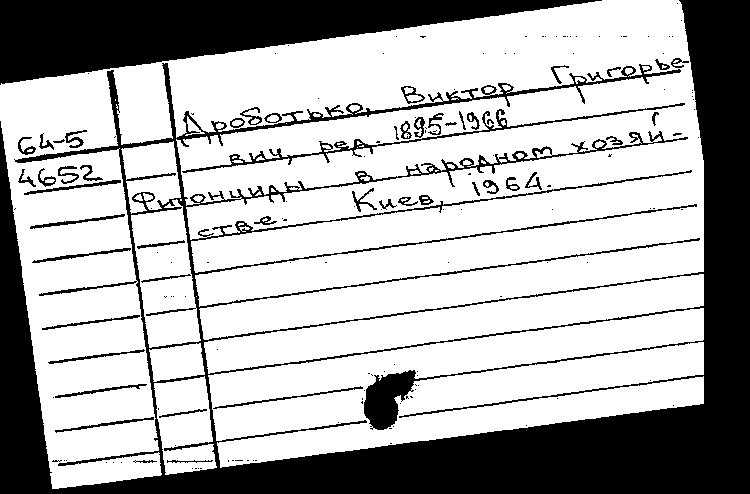 Дроботько, Виктор Григорье-
64-5
вич, ред. 1895-1966
4652
Фитонциды в народном хозяй-
стве. Киев, 1964.